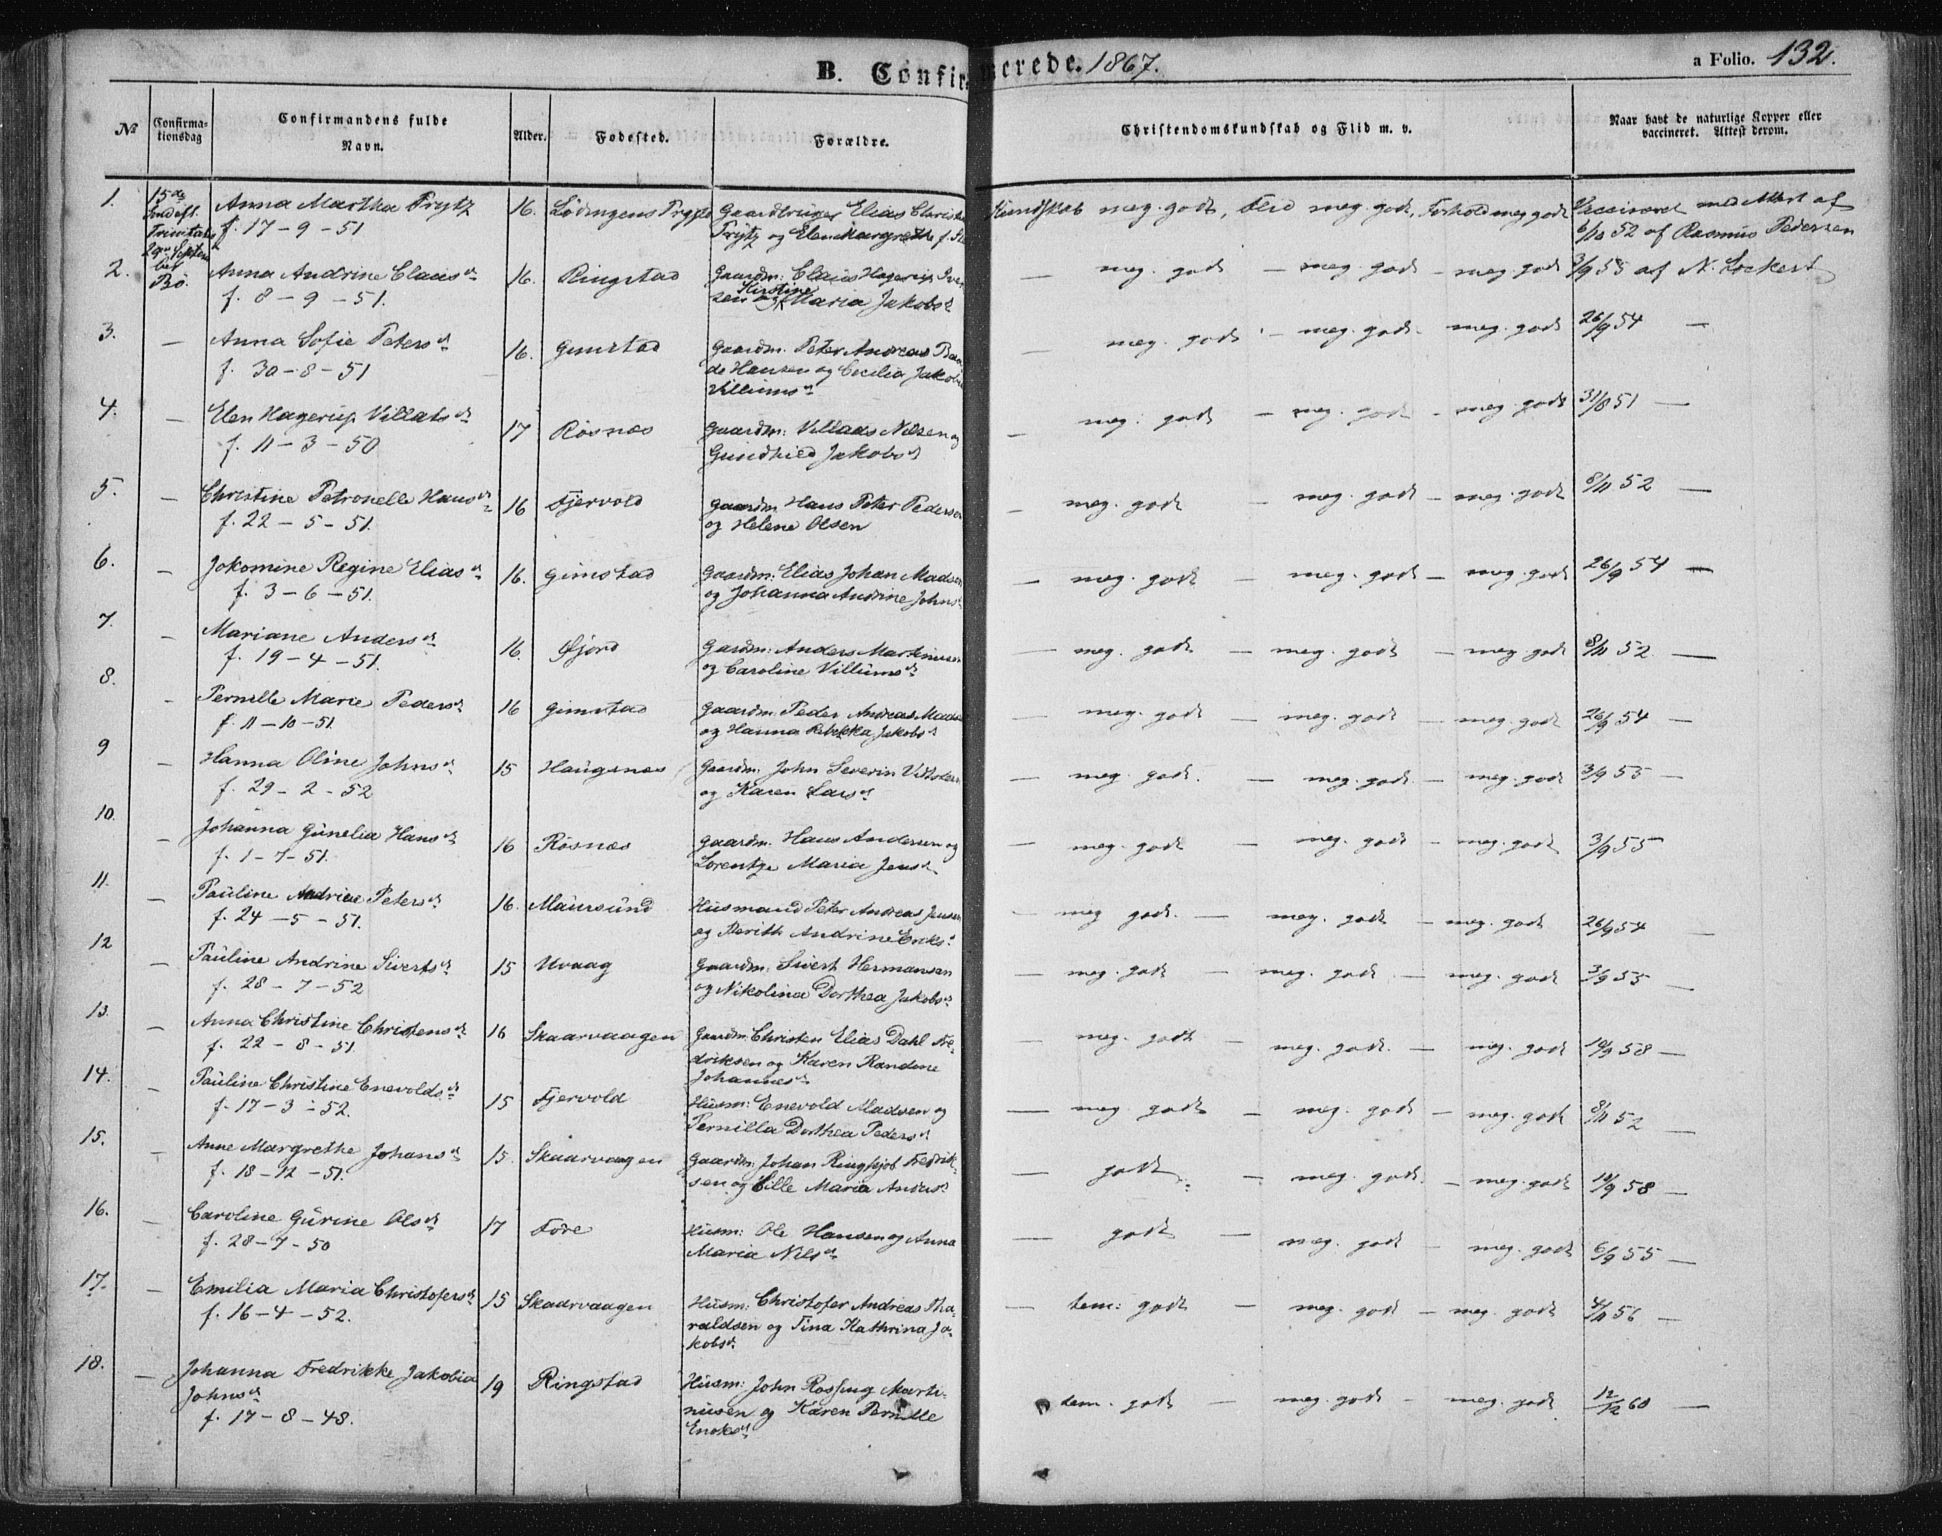 B. Confirmerede. 1867.
a Folio. 132.
No
Confirma-
tionsdag
Confirmandens fulde
Navn.
Alder.
Fødested.
Forældre.
Christendomskundskab og Flid m. v.
Naar havt de naturlige Kopper eller
vaccineret. Attest derom.
1.
15de
Trinitatis
Bø.
Anna Martha Frytz
f. 17-9-51
16.
Gaardbruger Elias
Frytz og Elen Margrethe
Kundskab meg. godt, Flid meg. godt, Forhold meg godt
Vaccineret med Attest af
6/10 52 af Rasmus Pedersen
2. Anna Andrine Clausd
f. 8-9-51.
16. Ringstad
Gaardm: Claus Hagerup Iver
sen og Kirstine Maria Jakobsd
— meg. godt — meg. godt — meg. godt 3/9 55 af N. Lockert
3. — Anna Sofie Petersd
f. 30-8-51
16. Gimstad
Gaardm. Peter Andreas Baa
de Hansen og Cecilia Jakobi
Villiumsd
— meg. godt — meg. godt meg. godt 26/9 54 —
4. — Elen Hagerup Villatsd
f. 11-3-50
17 Røsnæs
Gaardm: Villads Nilsen og
Gundhild Jakobsd
— meg. godt — meg. godt — meg. godt 31/8 51 —
5. — Christine Petronelle Hansd
f. 22-5-51.
16 Fjervold
Gaardm. Hans Peter Pedersen
og Helene Olsen
— meg. godt — meg. godt — meg. godt 8/11 52 —
6. — Jokomine Regine Eliasd
f. 3-6-51.
16. Gimstad
Gaardm: Elias Johan Madsen
og Johanna Andrine Johnsd
— meg. godt — meg. godt — meg. godt 26/9 54 —
7. — Mariane Andersd
f. 19-4-51.
16. Fjord
Gardm: Anders Martinusen
og Caroline Villiumsd
— meg. godt — meg. godt — meg godt 8/11 52 —
8. — Pernille Marie Pedersd
f. 11-10-51.
16 Gimstad
Gaardm. Peder Andreas Madsen
og Hanna Rebekka Jakobsd
— meg. godt — meg. godt — meg. godt 26/9 54 —
9 — Hanna Oline Johnsd
f. 29-2-52
15 Haugsnæs
Gaardm: John Severin
og Karen Larsd
— meg. godt. — meg. godt — meg. godt 3/9 55 —
10. — Johanna Gunelia Hansd
f. 1-7-51.
16 Røsnæs
Gaardm. Hans Andersen og
Lorentze Maria Jensd
— meg. godt — meg. godt — meg. godt 3/9 55
11. — Pauline Andrine Petersd
f. 24-5-51.
16. Maursund
Husmand Peter Andreas Jensen
og Berith Andrine Eriksd
— meg godt. — meg. godt — meg. godt 26/9 54 —
12 — Pauline Andrine Sivertsd
f. 28-7-52
15 Uvaag
Gaardm: Sivert Hermansen
og Nikolina Dorthea Jakobsd
— meg. godt — meg. godt — meg. godt 3/9 55 —
13. — Anna Christine Christensd
f. 22-8-51
16 Skaarvaagen
Gaardm: Christen Elias Dahl Fre-
driksen og Karen Randine
Johannesd
— meg. godt — meg. godt. — meg. godt 10/9 58 —
14. — Pauline Christine Enevoldsd
f. 17-3-52.
15 Fjervold
Husm: Enevold Madsen og
Pernilla Dorthea Pedersd
— meg godt — meg. godt — meg. godt 8/11 52 —
15. — Anne Margrethe Johansd
f. 18-12-51.
15. Skaarvaagen
Gaardm: Johan Ringhjob Fredrik-
sen og Cille Maria Andersd
— godt — meg. godt. — meg. godt 10/9 58 —
16. — Caroline Gurine Olsd
f. 28-7-50
17 Føre
Husm: Ole Hansen og Anna
Maria Nilsd
— godt — meg. godt — meg. godt 6/9 55 —
17. — Emilia Maria Christofersd
f. 16-4-52.
15 Skaarvaagen
Husm: Christofer Andreas Tha-
raldsen og Tina Kathrina Ja-
kobsd
— tem: godt — meg. godt — meg. godt 4/11 56 —
18. — Johanna Fredrikke Jakobia
Johnsd
f. 17-8-48.
19 Ringstad
Husm: John Rosting Marti-
nusen og Karen Pernille
Enoksd
— tem. godt — meg. godt — meg. godt 12/12 60 —